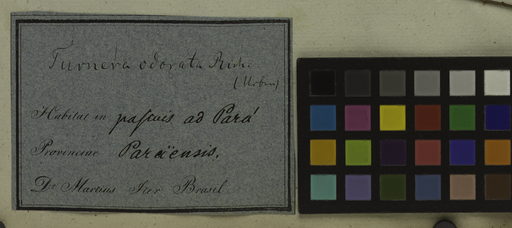 Turnera odorata Rich.
(Urban)
Habitat in pascuis ad Pará
Provinciae Paraënsis.
Dr Martius Iter Brasil.